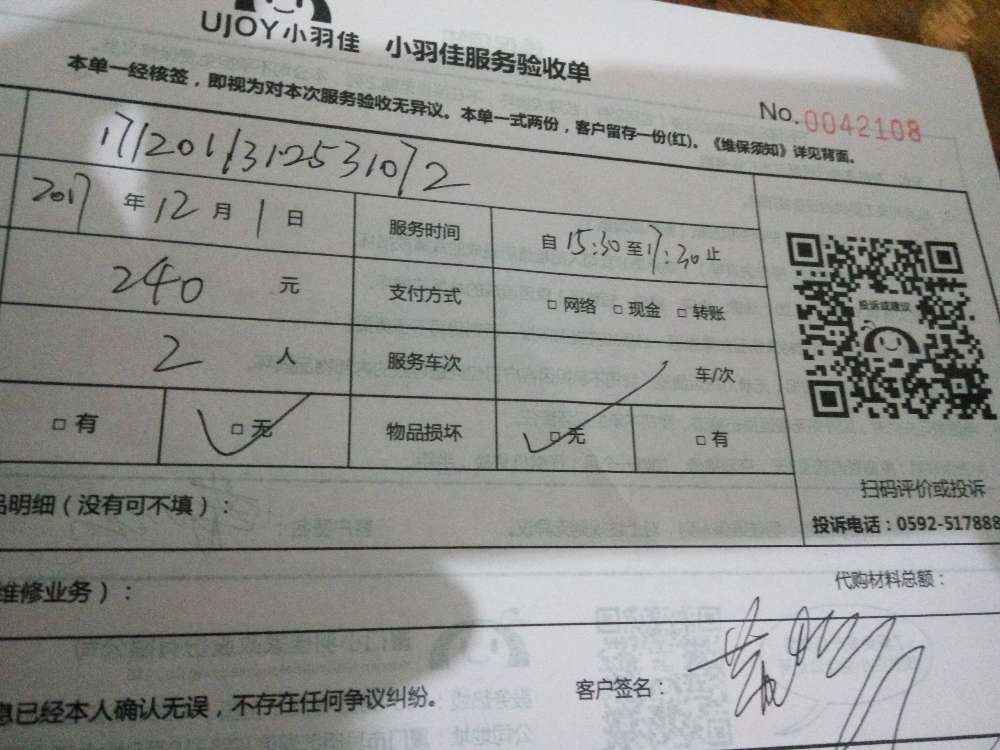 UJOY小羽佳 小羽佳服务验收单
本单一经核签，即视为对本次服务验收无异议。本单一式两份，客户留存一份(红)。《维保须知》详见背面。
No.0042108
17120113125310712
2017 年 12 月 1 日 服务时间 自 15:30 至 17:30 止
240 元 支付方式 □ 网络 □ 现金 □ 转账
2 人 服务车次 车/次
□ 有 □ 无 物品损坏 □ 无 □ 有
投诉或建议
扫码评价或投诉
投诉电话：0592-517888
品明细（没有可不填）：
代购材料总额：
维修业务）：
息已经本人确认无误，不存在任何争议纠纷。
客户签名：